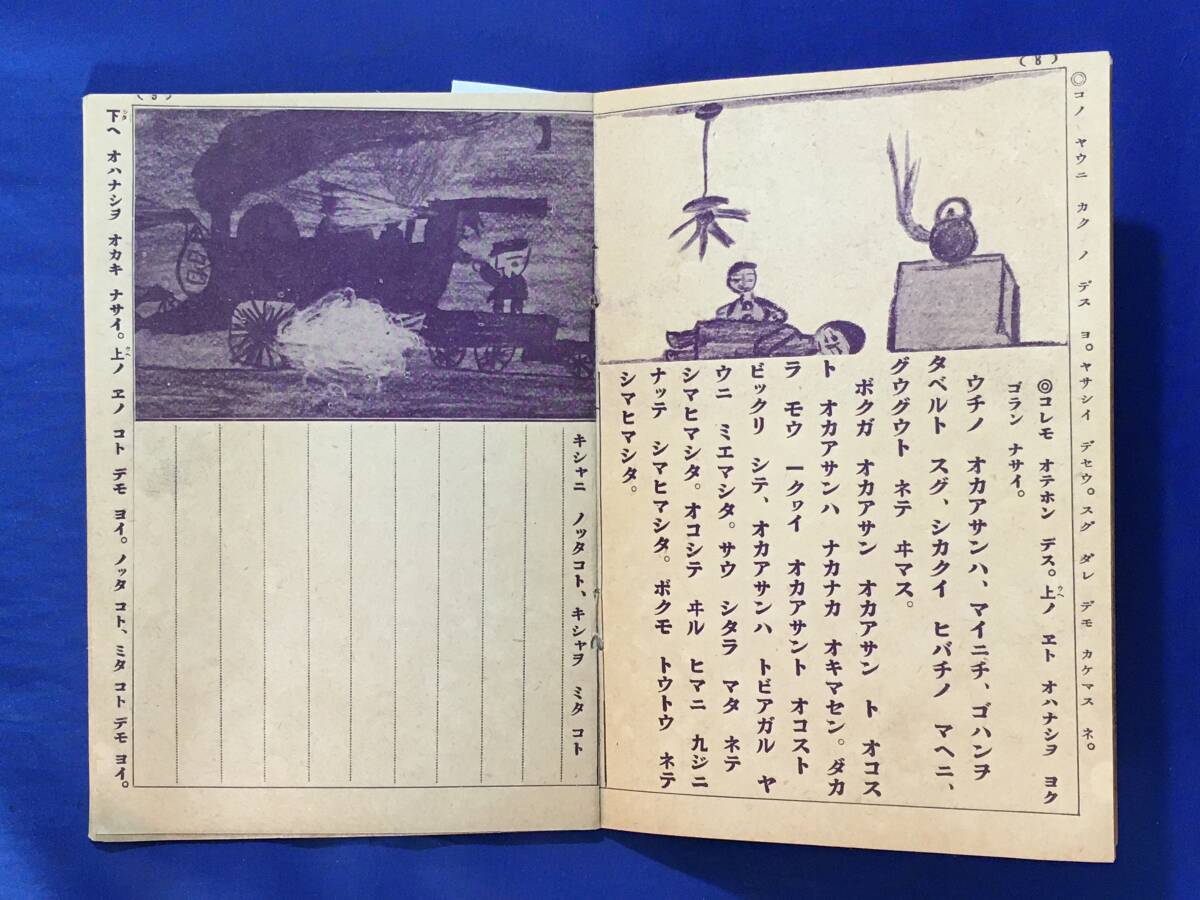 (8)
◎コノ ヤウニ カク ノ デス ヨ。ヤサシイ デセウ。スグ ダレ デモ カケマス ネ。
◎コレモ オテホン デス。上ノ ヱト オハナシヲ ヨク
ゴラン ナサイ。
ウチノ オカアサンハ、マイニチ、ゴハンヲ
タベルト スグ、シカクイ ヒバチノ マヘニ、
グウグウト ネテ ヰマス。
ボクガ オカアサン オカアサン ト オコス
ト オカアサンハ ナカナカ オキマセン。ダカ
ラ モウ 一クワイ オカアサント オコスト
ビックリ シテ、オカアサンハ トビアガル ヤ
ウニ ミエマシタ。サウ シタラ マタ ネテ
シマヒマシタ。オコシテ ヰル ヒマニ 九ジニ
ナッテ シマヒマシタ。ボクモ トウトウ ネテ
シマヒマシタ。
キシャニ ノッタコト、キシャヲ ミタ コト
下ヘ オハナシヲ オカキ ナサイ。上ノ ヱノ コト デモ ヨイ。ノッタ コト、ミタ コト デモ ヨイ。